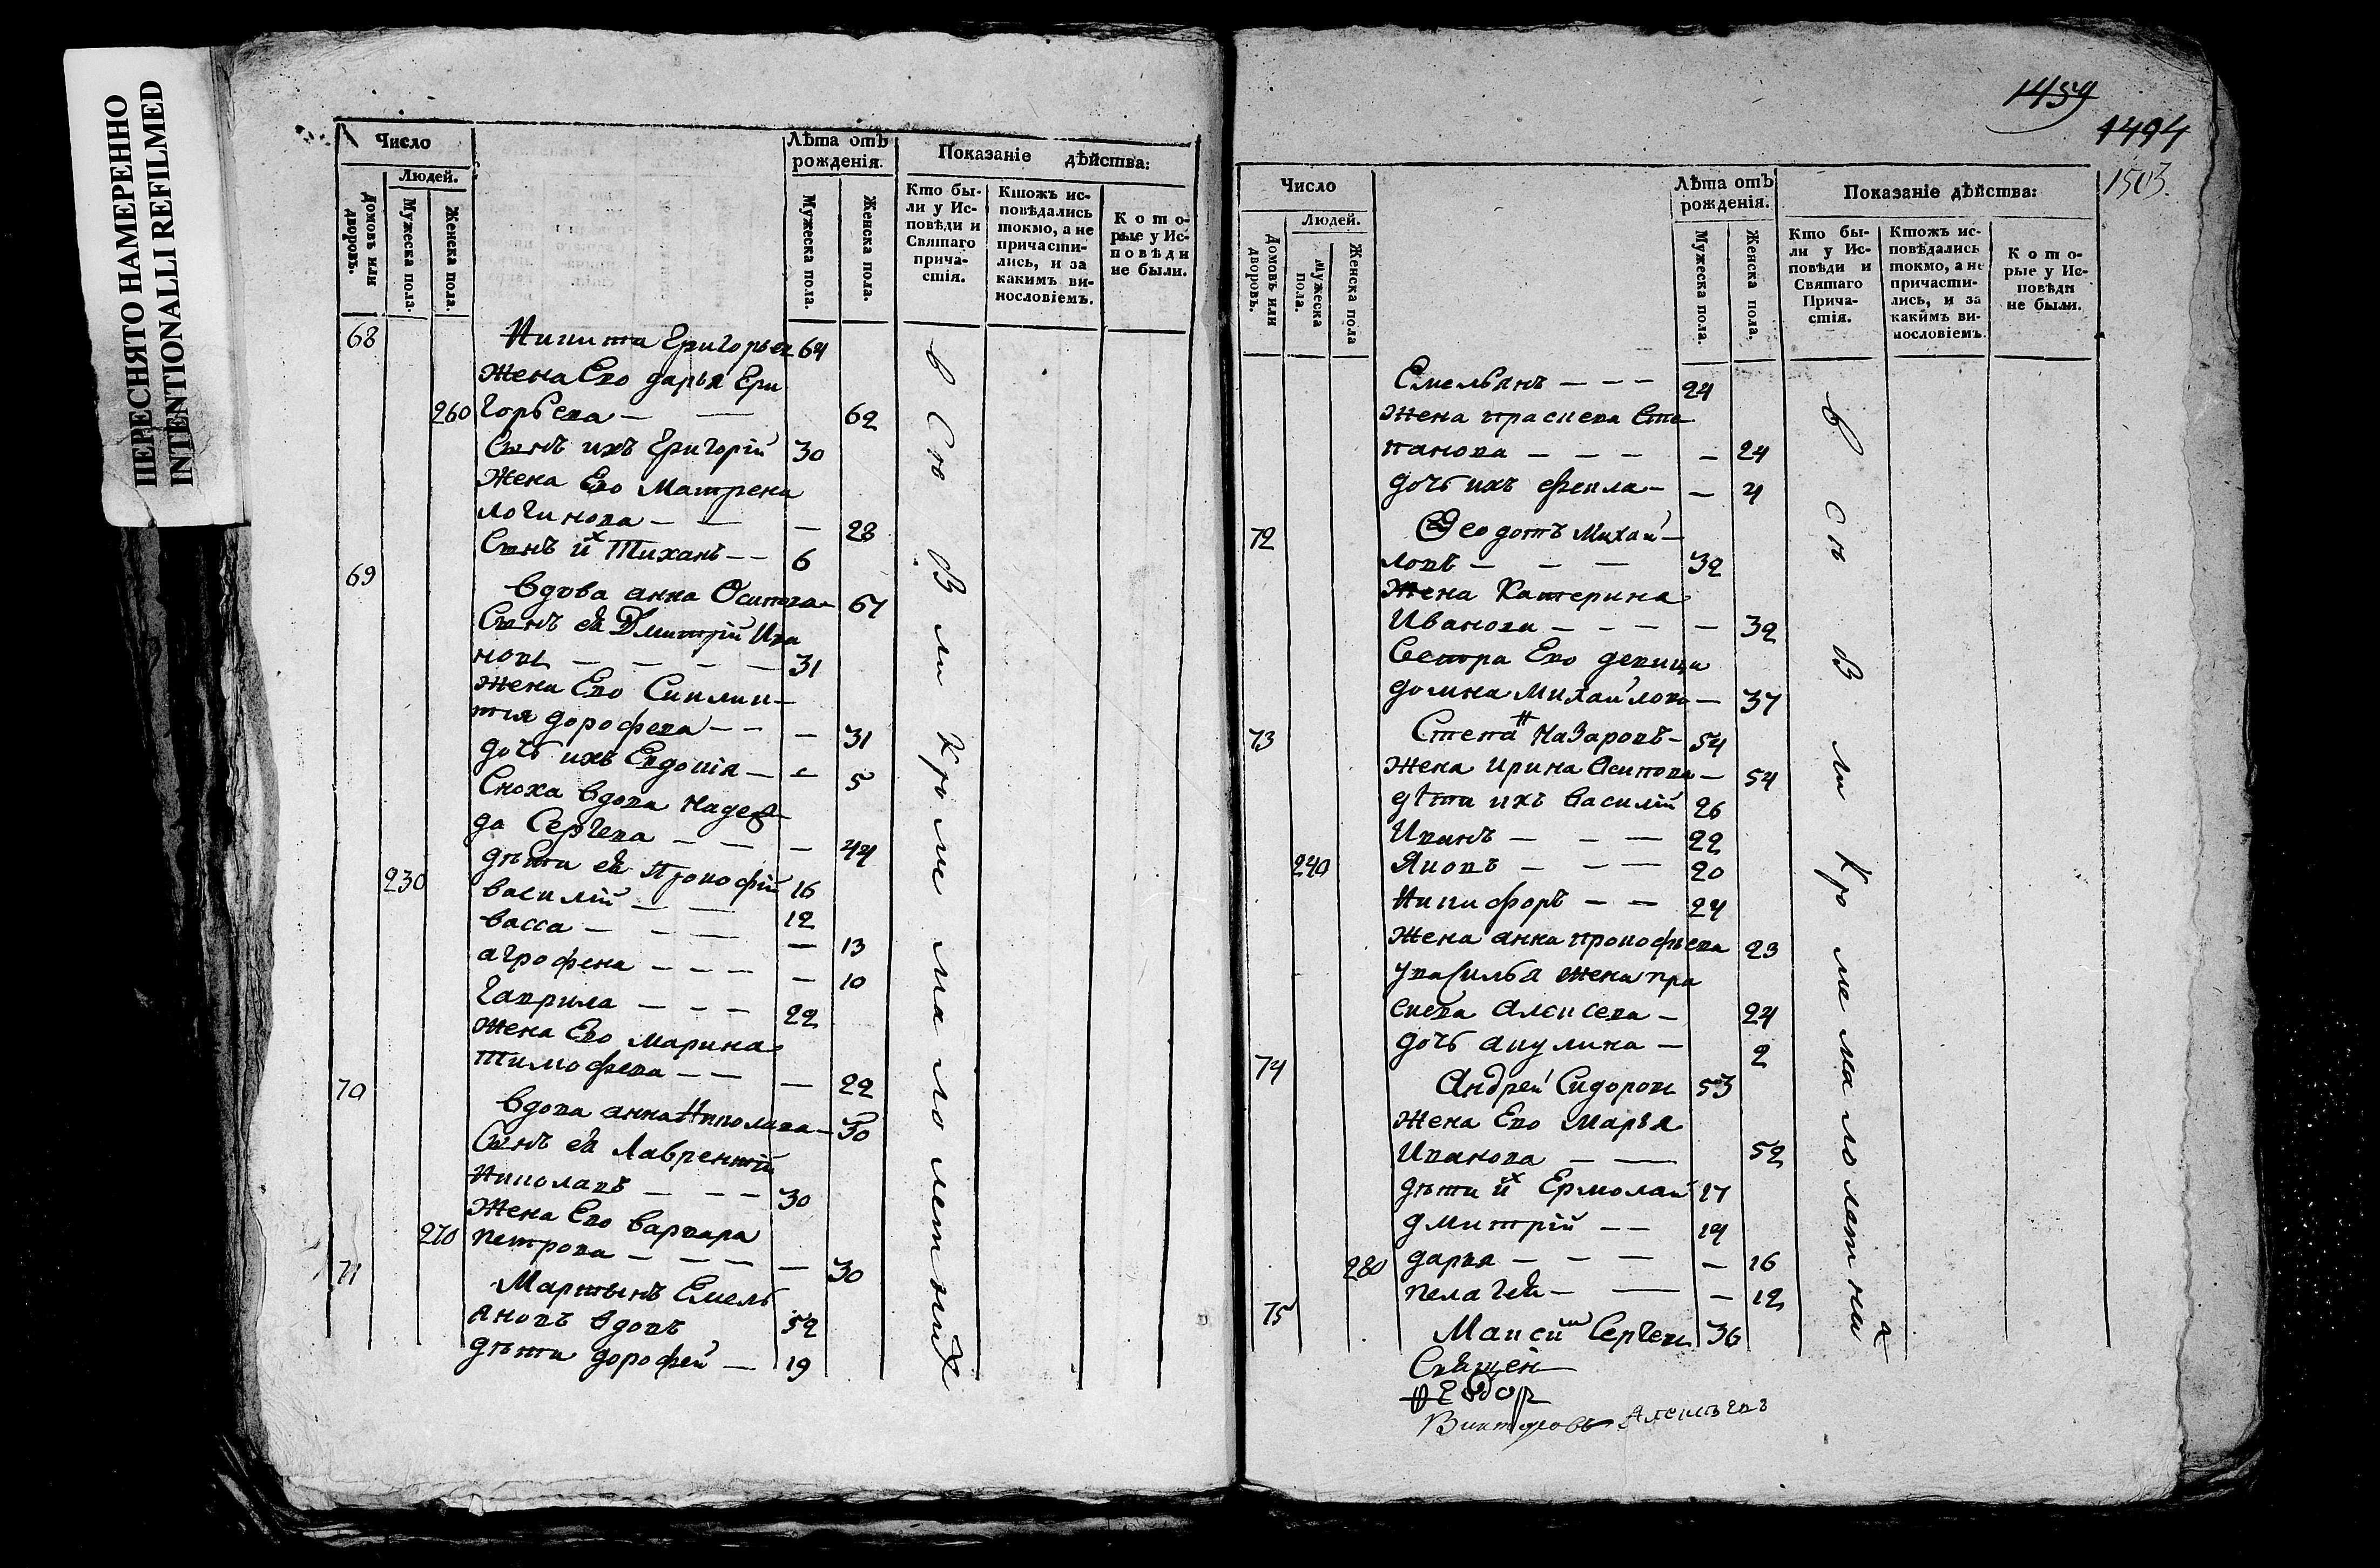 ПЕРЕСНЯТО НАМЕРЕННО
INTENTIONALLI REFILMED
Число
Людей.
Домовъ или дворовъ.
Мужеска пола.
Женска пола.
Лѣта отъ рожденія.
Мужеска пола.
Женска пола.
Показаніе дѣйства:
Кто бы-
ли у Ис-
повѣди и
Святаго
прича-
стія.
Ктожъ ис-
повѣдались
токмо, а не
причасти-
лись, и за
какимъ ви-
нословіемъ.
Кото-
рые у Ис-
повѣди
не были.
68 Никита Григорьев 64
Жена Его дарья Гри
260 горьева — — 62
Сынъ ихъ Григорій 30
Жена Его Матрена
логинова — — — 28
Сынъ их Тиханъ — — 6
69 вдова анна Осипова — 67
Сынъ ей Дмитрій Ива
новъ — — — — 31
жена Его Сикли-
тия дорофева — — — 31
дочь ихъ Евдокія — — 5
Сноха вдова надеж
да Сергева — — — 44
дѣти ей Прокофій 16
230 василій — — 12
васса — — — — 13
агрофена — — — — 10
гаврила — — — 22
Жена Его марина
тимофева — — — 22
70 вдова анна Николава — 50
Сынъ ей Лаврентій
Николавъ — — — 30
Жена Его варвара
270 петрова — — — — 30
71 Мартынъ Емель
яновъ вдовъ 52
дѣти дорофей — 19
в Сю В ли Кро ме ма ло лет них
1459
1494
1503
Число
Людей.
Домовъ или дворовъ.
Мужеска пола.
Женска пола
Лѣта отъ рожденія.
Мужеска пола.
Женска пола.
Показаніе дѣйства:
Кто бы-
ли у Ис-
повѣди и
Святаго
Прича-
стія.
Ктожъ ис-
повѣдались
токмо, а не
причасти-
лись, и за
какимъ ви-
нословіемъ.
Кото-
рые у Ис-
повѣди
не были.
Емельянъ — — — 24
Жена праскева Сте
панова — — — — 24
дочь ихъ фекла — — 4
72 Ѳеодотъ Михай —
ловъ — — — 32
Жена Катерина
Иванова — — — — 32
Сестра Его девица
домна михайлова — 37
73 Степан Назаровъ — 54
жена ирина Осипова — 54
дѣти ихъ василій 26
Иванъ — — — 22
240 Яковъ — — — 20
Никифоръ — — 24
Жена анна прокофьева 23
увасилья жена пра
скева Алексева — 24
дочь акулина — 2
74 Андрей Сидоровъ 53
жена Его марья
Иванова — — 52
дѣти их Ермолай 17
дмитрій — — 14
280 дарья — — — — 16
пелагея — — — 12
75 Максим Сергевъ 36
в Сю В ли Кро ме ма ло лет на
Священ
Ѳедор
Викторовъ Алексѣевъ